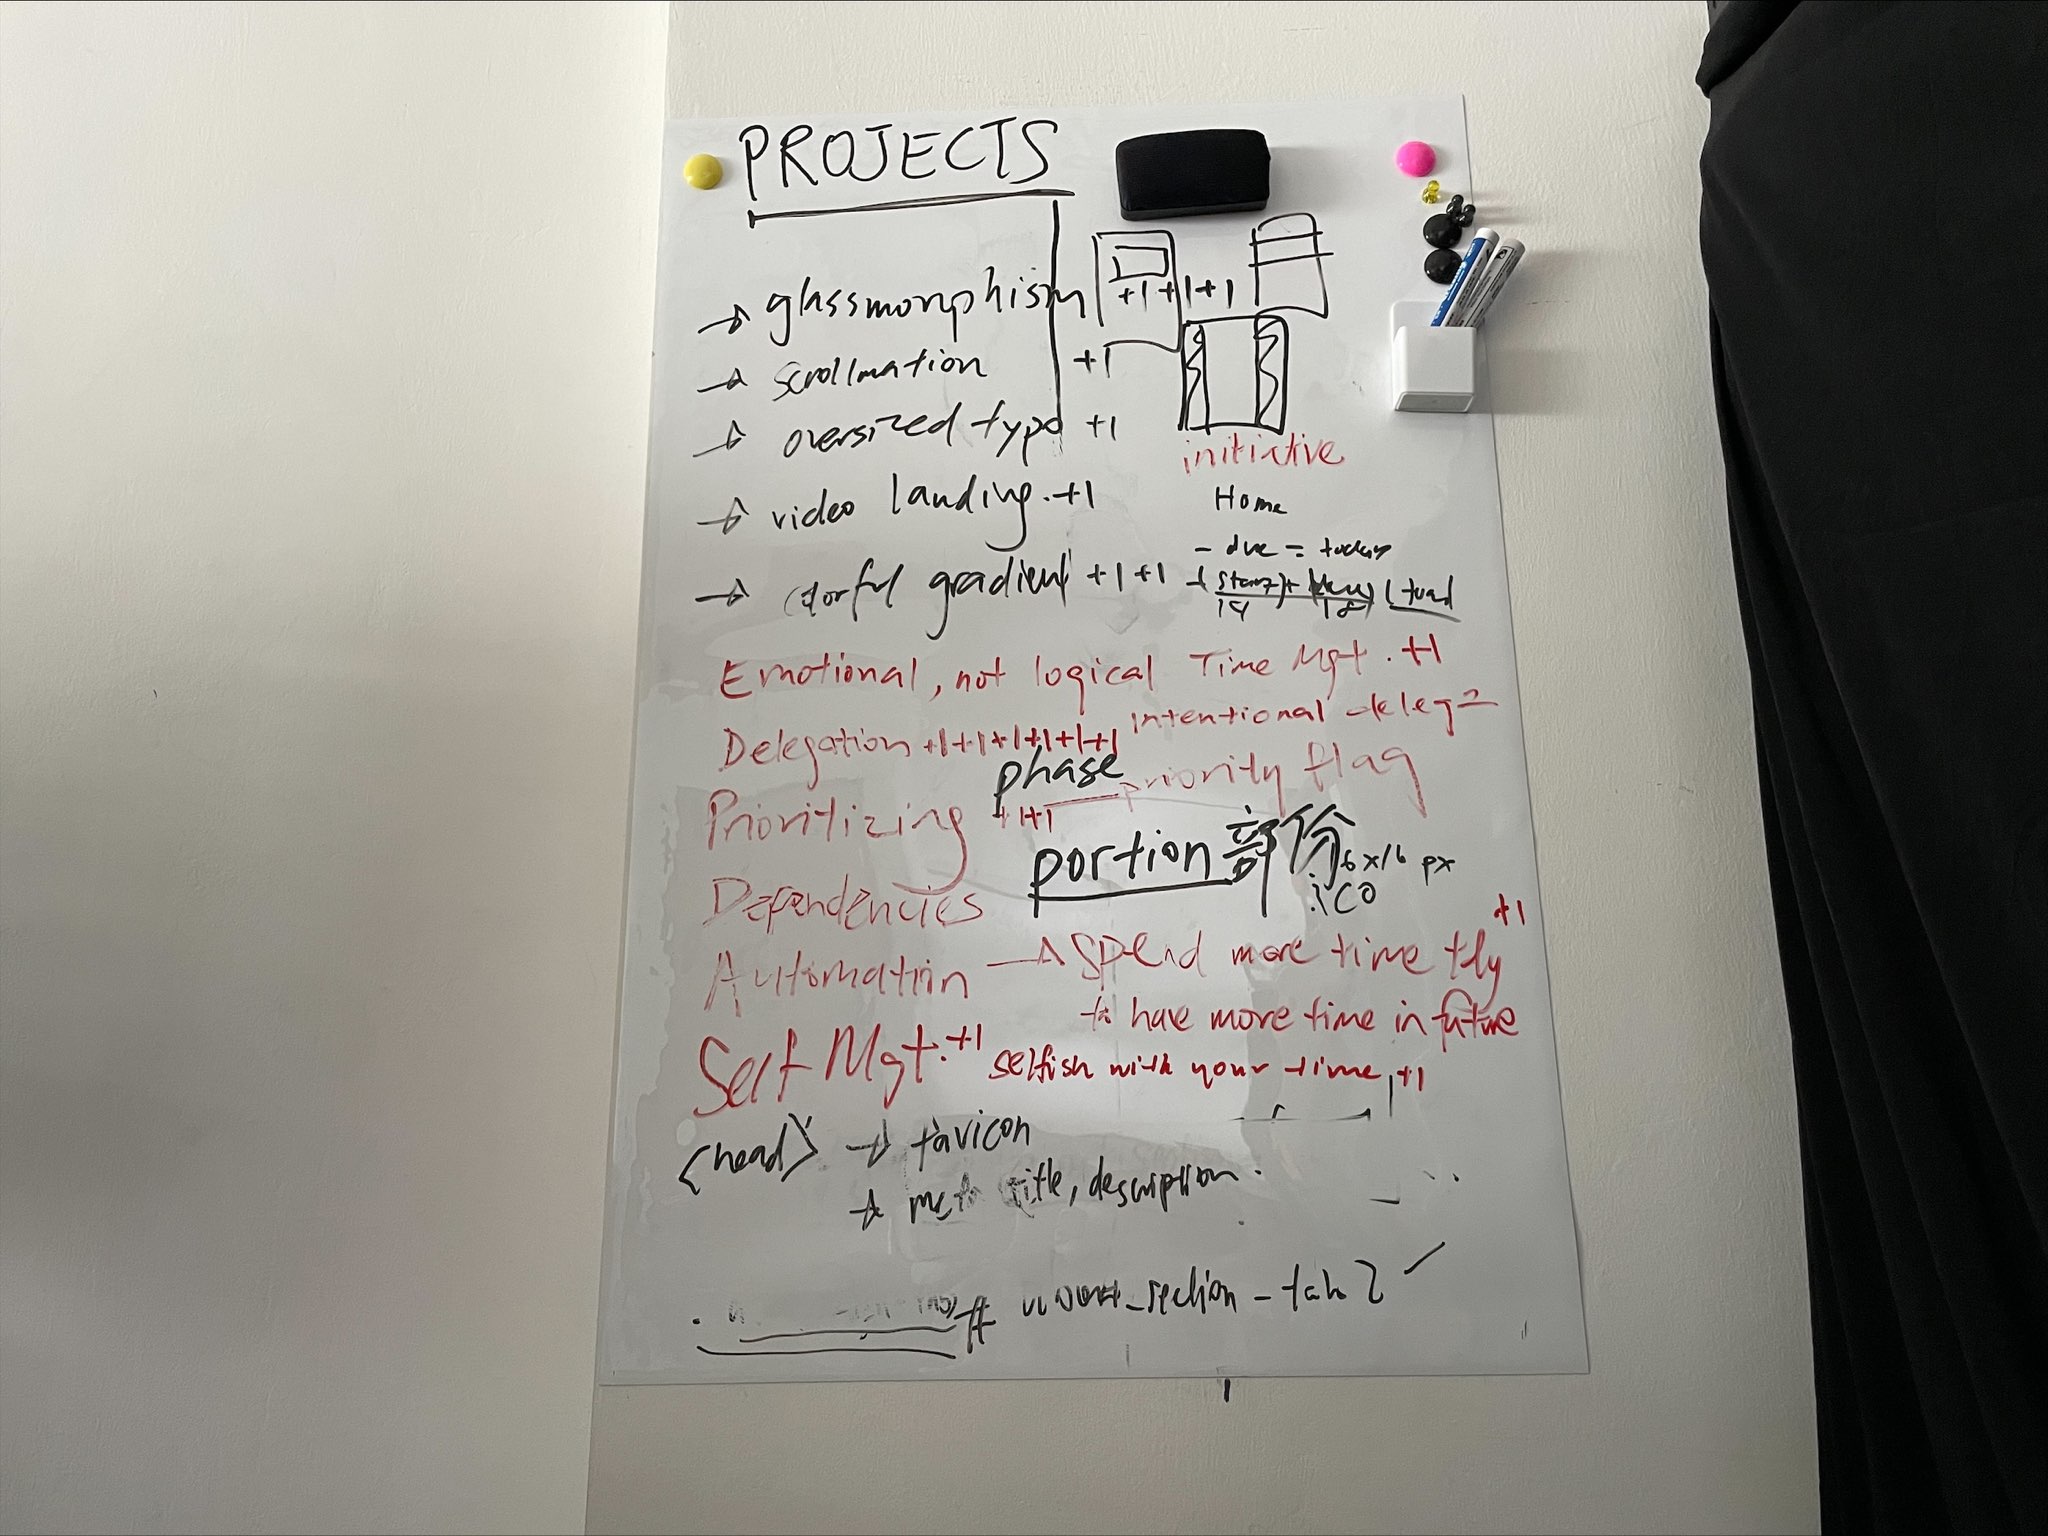 PROJECTS
→ glassmorphism +1+1+1
→ scrollmation +1
→ oversized typo +1
→ video landing. +1
→ colorful gradient +1+1
initiative
Home
- due = today
Emotional, not logical Time Mgt. +1
Delegation +1+1+1+1+1+1 intentional deleg
phase
Prioritizing +1+1 → priority flag
portion 部份 16x16 px
.ico
Dependencies
Automation → Spend more time tdy +1
to have more time in future
Self Mgt. +1 selfish with your time. +1
<head> → favicon
→ meta title, description.
# section_tab 2 ✓